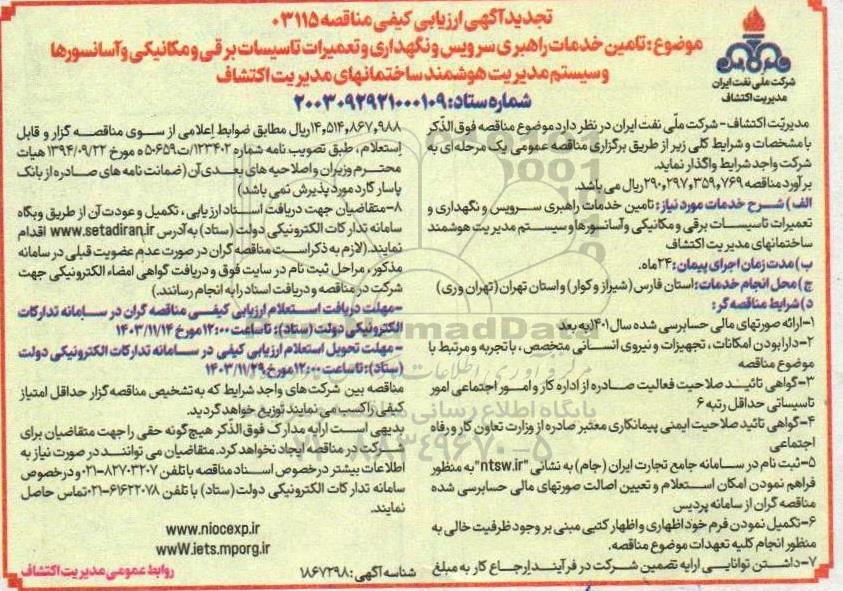 تجدید آگهی ارزیابی کیفی مناقصه ۰۳۱۱۵
موضوع: تامین خدمات راهبری سرویس و نگهداری و تعمیرات تاسیسات برقی و مکانیکی و آسانسورها
و سیستم مدیریت هوشمند ساختمانهای مدیریت اکتشاف
شماره ستاد: ۲۰۰۳۰۹۲۹۲۱۰۰۰۱۰۹
شرکت ملی نفت ایران
مدیریت اکتشاف
مدیریّت اکتشاف - شرکت ملّی نفت ایران در نظر دارد موضوع مناقصه فوق الذکر
با مشخصات و شرایط کلی زیر از طریق برگزاری مناقصه عمومی یک مرحله ای به
شرکت واجد شرایط واگذار نماید.
برآورد مناقصه ۲۹۰,۲۹۷,۳۵۹,۷۶۹ ریال می باشد.
الف) شرح خدمات مورد نیاز: تامین خدمات راهبری سرویس و نگهداری و
تعمیرات تاسیسات برقی و مکانیکی و آسانسورها و سیستم مدیریت هوشمند
ساختمانهای مدیریت اکتشاف
ب) مدت زمان اجرای پیمان: ۲۴ماه.
ج) محل انجام خدمات: استان فارس (شیراز و کوار) و استان تهران (تهران و ری)
د) شرایط مناقصه گر:
۱-ارائه صورتهای مالی حسابرسی شده سال ۱۴۰۱به بعد
۲-دارا بودن امکانات ، تجهیزات و نیروی انسانی متخصص ، با تجربه و مرتبط با
موضوع مناقصه
۳-گواهی تائید صلاحیت فعالیت صادره از اداره کار و امور اجتماعی امور
تاسیساتی حداقل رتبه ۶
۴-گواهی تائید صلاحیت ایمنی پیمانکاری معتبر صادره از وزارت تعاون کار و رفاه
اجتماعی
۵-ثبت نام در سامانه جامع تجارت ایران (جام) به نشانی "ntsw.ir" به منظور
فراهم نمودن امکان استعلام و تعیین اصالت صورتهای مالی حسابرسی شده
مناقصه گران از سامانه پردیس
۶-تکمیل نمودن فرم خود اظهاری و اظهار کتبی مبنی بر وجود ظرفیت خالی به
منظور انجام کلیه تعهدات موضوع مناقصه.
۷-داشتن توانایی ارایه تضمین شرکت در فرآیند اِرجاع کار به مبلغ
۱۴,۵۱۴,۸۶۷,۹۸۸ریال مطابق ضوابط اِعلامی از سوی مناقصه گزار و قابل
اِستعلام ، طبق تصویب نامه شماره ۱۲۳۴۰۲/ت۵۰۶۵۹ه مورخ ۱۳۹۴/۰۹/۲۲ هیات
محترم وزیران و اصلاحیه های بعدی آن (ضمانت نامه های صادره از بانک
پاسارگاد مورد پذیرش نمی باشد)
۸-متقاضیان جهت دریافت اسناد ارزیابی ، تکمیل و عودت آن از طریق وبگاه
سامانه تدارکات الکترونیکی دولت (ستاد) به آدرس www.setadiran.ir اقدام
نمایند. (لازم به ذکر است مناقصه گران در صورت عدم عضویت قبلی در سامانه
مذکور ، مراحل ثبت نام در سایت فوق و دریافت گواهی امضاء الکترونیکی جهت
شرکت در مناقصه و دریافت اسناد را به انجام رسانند.)
-مهلت دریافت استعلام ارزیابی کیفی مناقصه گران در سامانه تدارکات
الکترونیکی دولت (ستاد): تا ساعت ۱۲:۰۰ مورخ ۱۴۰۳/۱۱/۱۴
-مهلت تحویل استعلام ارزیابی کیفی در سامانه تدارکات الکترونیکی دولت
(ستاد): تا ساعت ۱۲:۰۰ مورخ ۱۴۰۳/۱۱/۲۹
مناقصه بین شرکت های واجد شرایط که به تشخیص مناقصه گزار حداقل امتیاز
کیفی را کسب می نمایند توزیع خواهد گردید.
بدیهی است ارایه مدارک فوق الذکر هیچ گونه حقی را جهت متقاضیان برای
شرکت در مناقصه ایجاد نخواهد کرد. متقاضیان می توانند در صورت نیاز به
اطلاعات بیشتر در خصوص اسناد مناقصه با تلفن ۸۲۷۰۳۲۰۷-۰۲۱ و در خصوص
سامانه تدارکات الکترونیکی دولت (ستاد) با تلفن ۶۱۶۲۲۰۷۸-۰۲۱ تماس حاصل
نمایند.
www.niocexp.ir
wwW.iets.mporg.ir
شناسه آگهی: ۱۸۶۷۲۹۸
روابط عمومی مدیریت اکتشاف